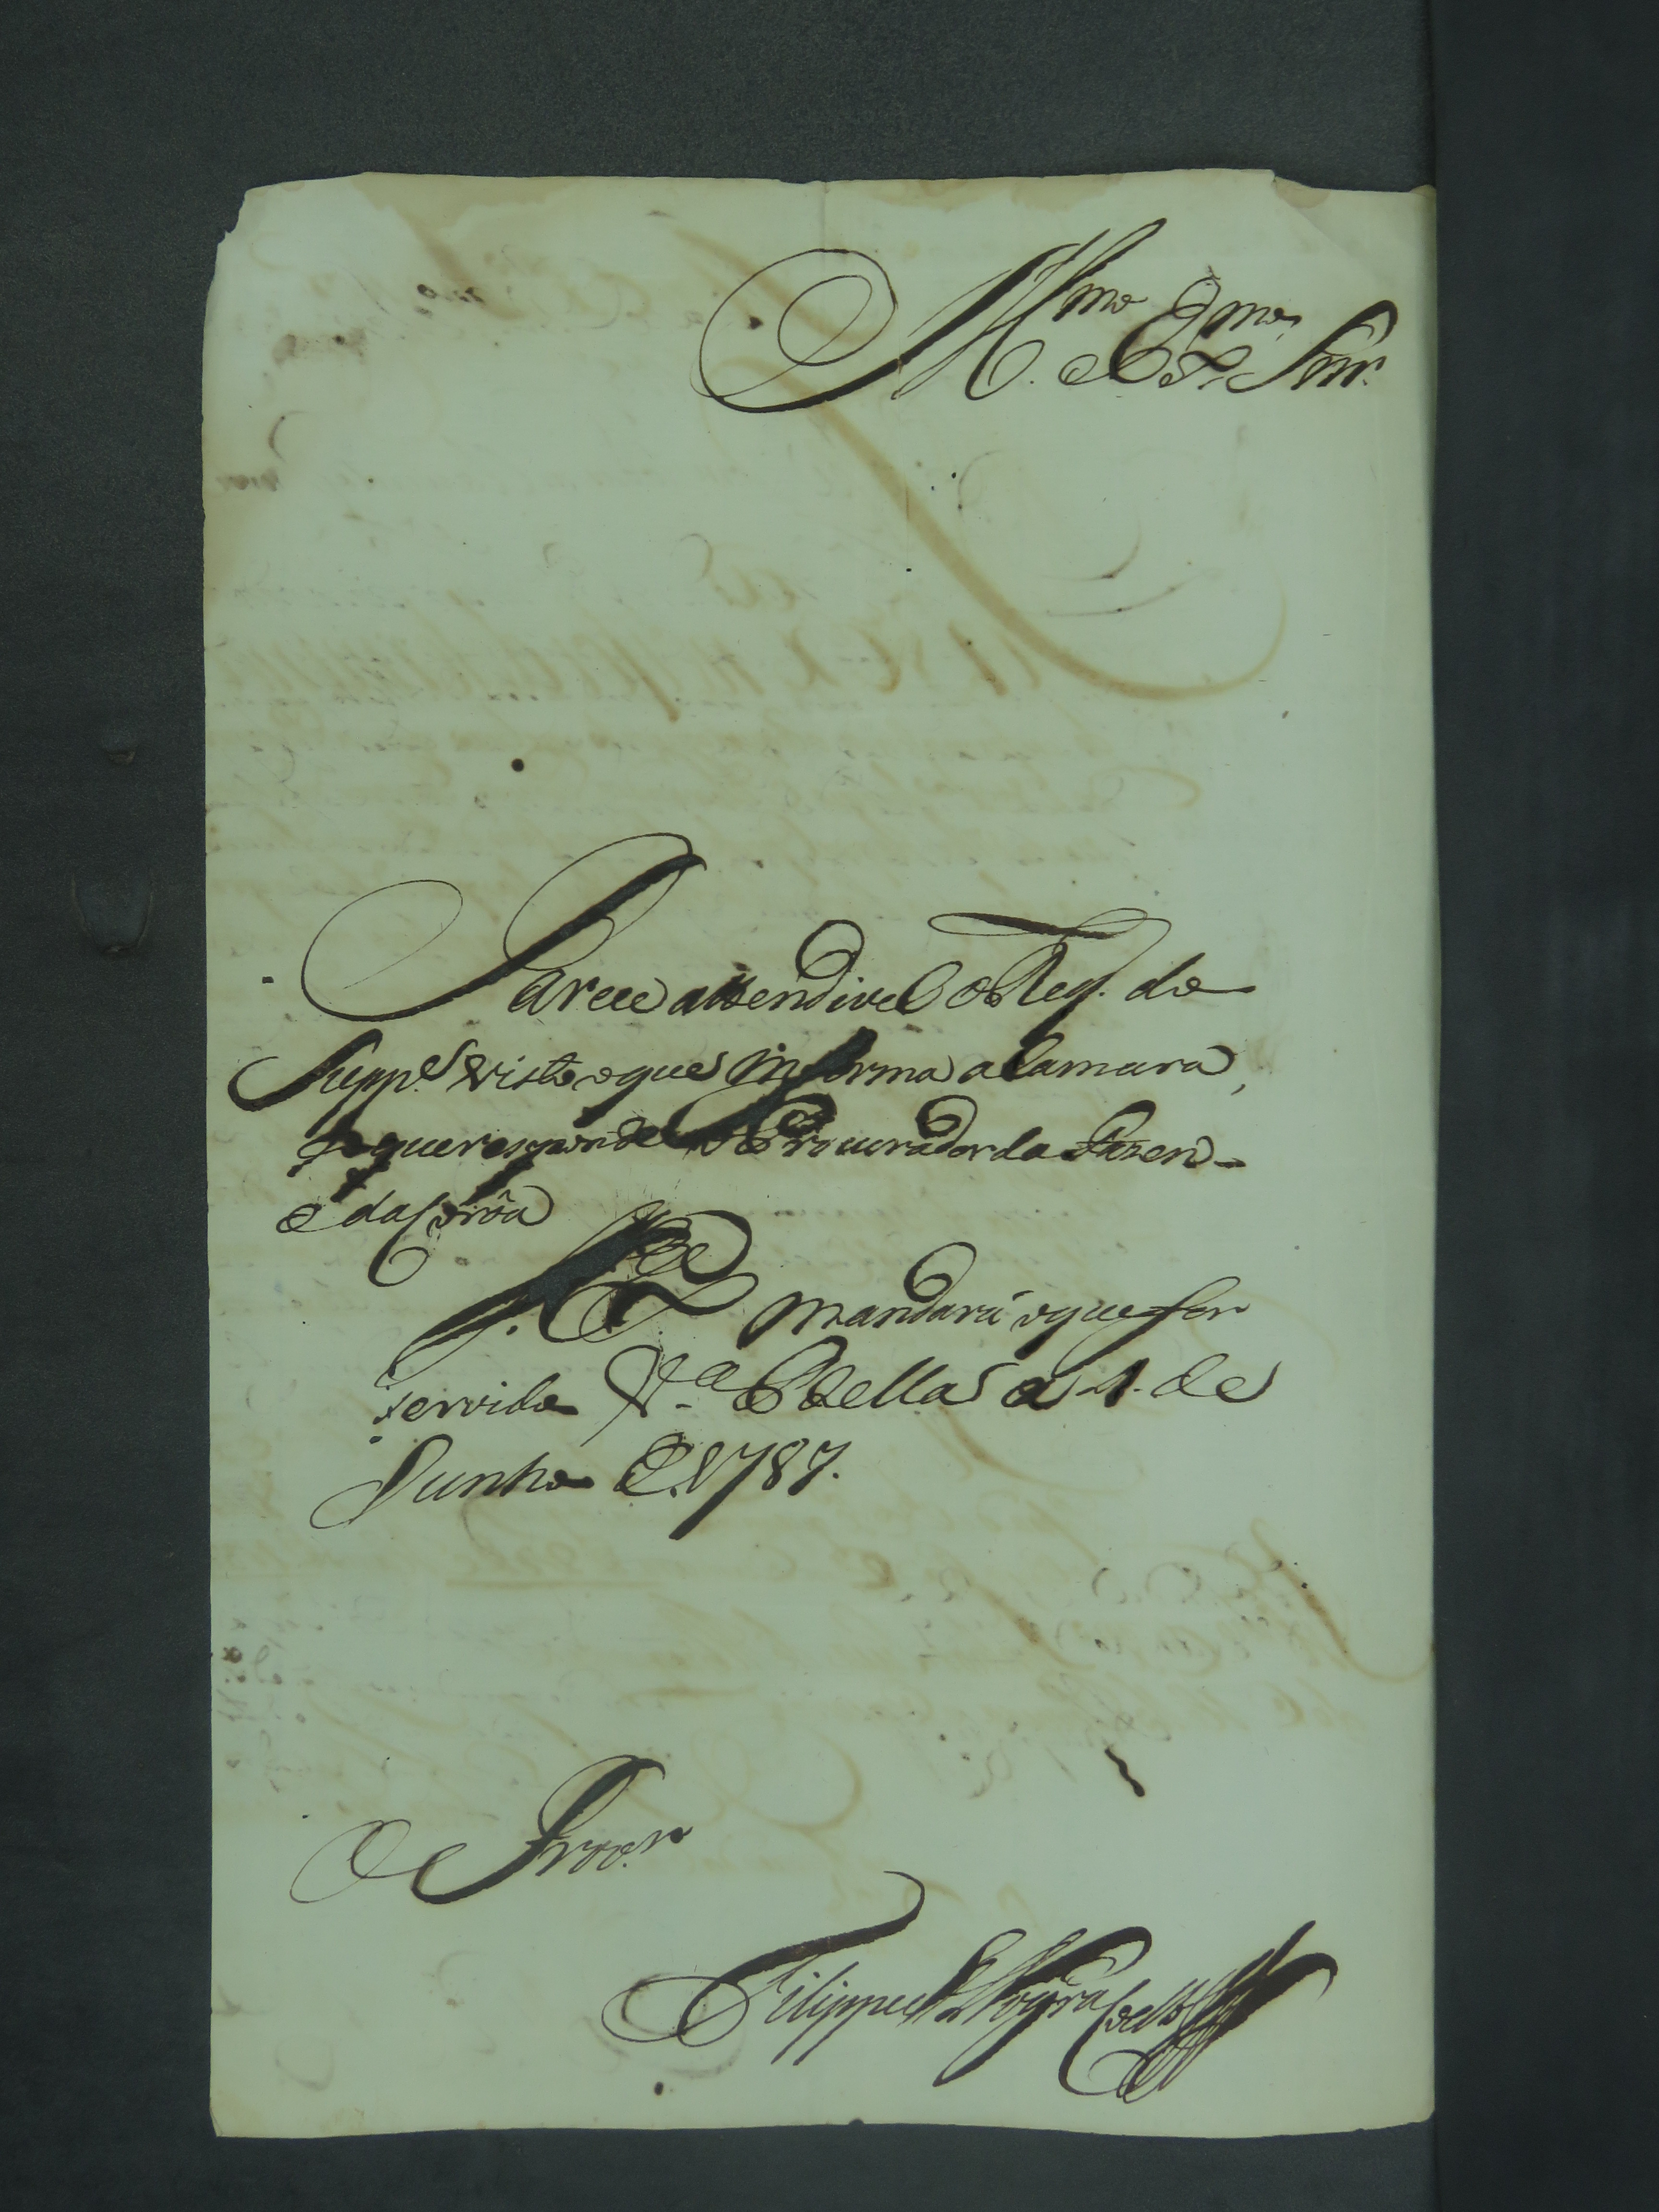 Illmo. e Exmo. Snr.
Parece attendivel o Reqr. do
Suppe. visto o que informa a Camara,
e o que responde o Procurador da Fazen-
e da Corôa
V. Exa. mandará o que for
servido Va. Bella a 1. de
Junho de 1787.
O Prov.or
Filippe Je. Nogra. Coelho